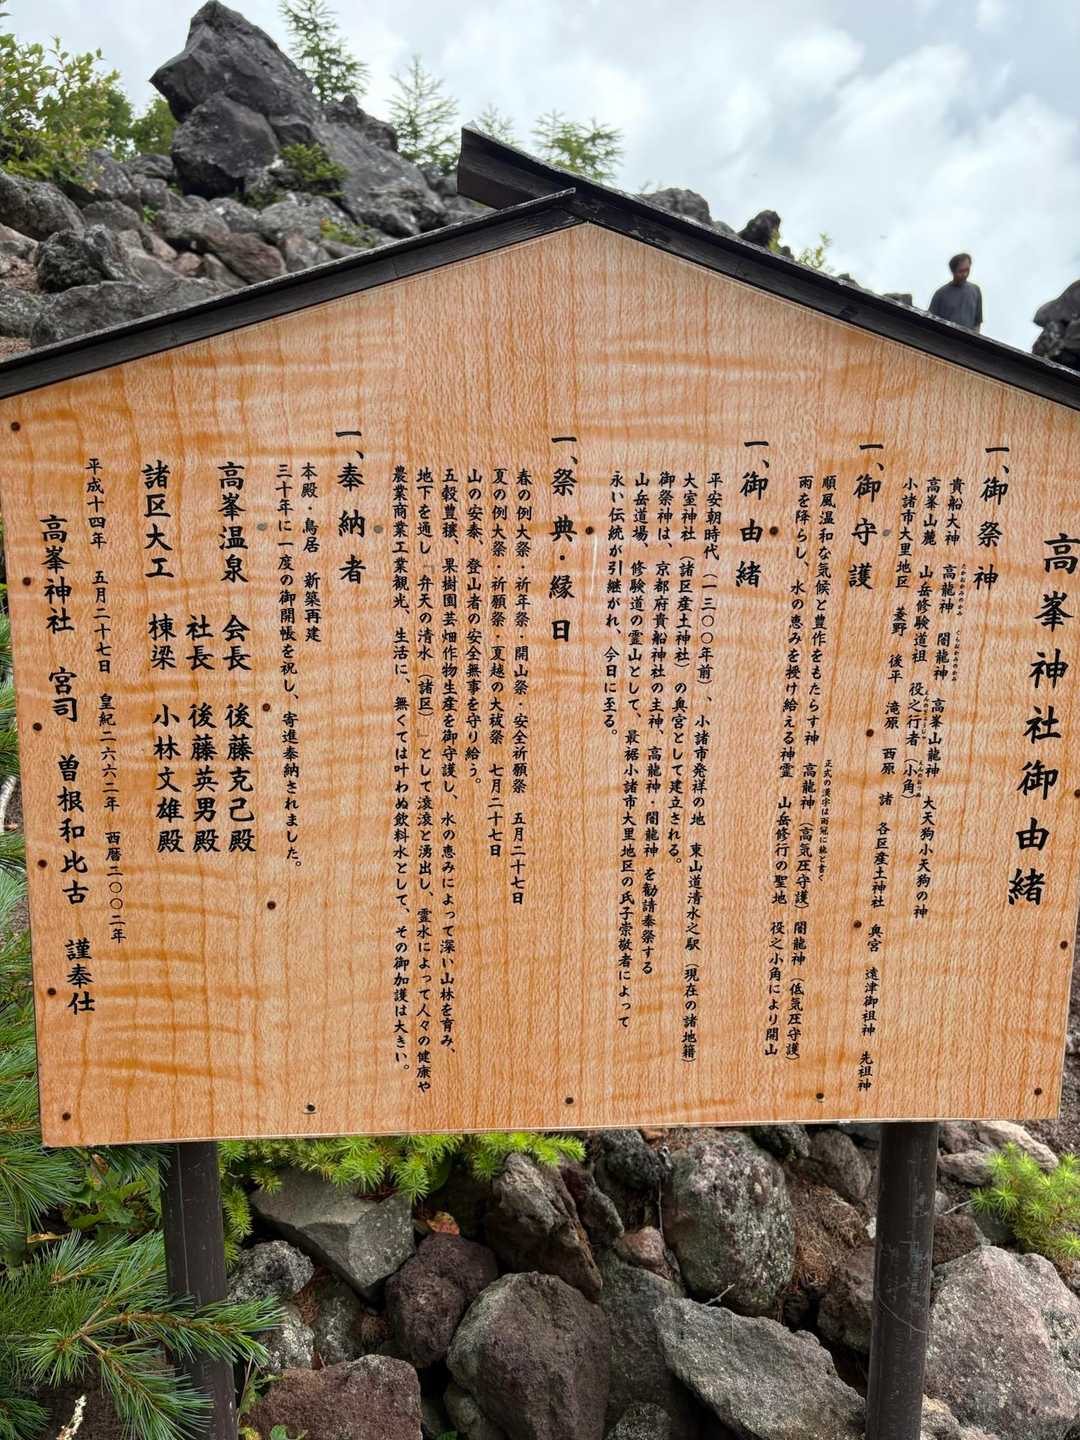 高峯神社御由緒
一、御祭神
貴船大神 高龍神 闇龍神 高峯山龍神 大天狗小天狗の神
たかおかみのかみ くらおかみのかみ
高峯山麓 山岳修験道祖 役之行者(小角)
えんのぎょうじゃ えんのおづぬ
小諸市大里地区 菱野 後平 滝原 西原 諸 各区産土神社 奥宮 遠津御祖神 先祖神
一、御守護
順風温和な気候と豊作をもたらす神 高龍神(高気圧守護)闇龍神(低気圧守護)
正式の漢字は雨冠に龍と書く
雨を降らし、水の恵みを授け給える神霊 山岳修行の聖地 役之小角により開山
一、御由緒
平安朝時代(一三〇〇年前)、小諸市発祥の地 東山道清水之駅(現在の諸地籍)
大室神社(諸区産土神社)の奥宮として建立される。
御祭神は、京都府貴船神社の主神、高龍神・闇龍神 を勧請奉祭する
山岳道場、修験道の霊山として、最裾小諸市大里地区の氏子崇敬者によって
永い伝統が引継がれ、今日に至る。
一、祭典・縁日
春の例大祭・祈年祭・開山祭・安全祈願祭 五月二十七日
夏の例大祭・祈願祭・夏越の大祓祭 七月二十七日
山の安泰、登山者の安全無事を守り給う。
五穀豊穣、果樹園芸畑作物生産を御守護し、水の恵みによって深い山林を育み、
地下を通し「弁天の清水(諸区)」として滾滾と湧出し、霊水によって人々の健康や
農業商業工業観光、生活に、無くては叶わぬ飲料水として、その御加護は大きい。
一、奉納者
本殿・鳥居 新築再建
三十年に一度の御開帳を祝し、寄進奉納されました。
高峯温泉 会長 後藤克己殿
社長 後藤英男殿
諸区大工 棟梁 小林文雄殿
平成十四年 五月二十七日 皇紀二六六二年 西暦二〇〇二年
高峯神社 宮司 曽根和比古 謹奉仕